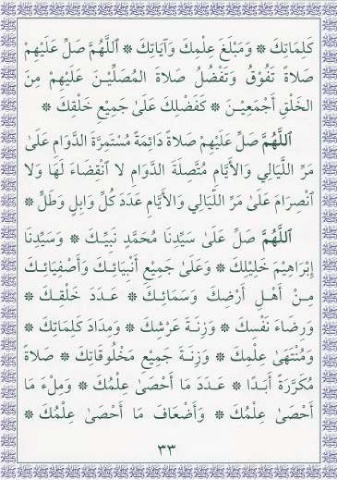 كَلِمَاتِكَ * وَمَبْلَغَ عِلْمِكَ وَآيَاتِكَ * اَللَّهُمَّ صَلِّ عَلَيْهِمْ
صَلاَةً تَفُوْقُ وَتَفْضُلُ صَلاَةَ الْمُصَلِّيْنَ عَلَيْهِمْ مِنَ
الْخَلْقِ أَجْمَعِيْنَ * كَفَضْلِكَ عَلَىٰ جَمِيْعِ خَلْقِكَ *
اَللَّهُمَّ صَلِّ عَلَيْهِمْ صَلاَةً دَائِمَةً مُسْتَمِرَّةَ الدَّوَامِ عَلَىٰ
مَرِّ اللَّيَالِي وَالأَيَّامِ مُتَّصِلَةَ الدَّوَامِ لاَ انْقِضَاءَ لَهَا وَلاَ
انْصِرَامَ عَلَىٰ مَرِّ اللَّيَالِي وَالأَيَّامِ عَدَدَ كُلِّ وَابِلٍ وَطَلٍّ *
اَللَّهُمَّ صَلِّ عَلَىٰ سَيِّدِنَا مُحَمَّدٍ نَبِيِّكَ * وَسَيِّدِنَا
إِبْرَاهِيْمَ خَلِيْلِكَ * وَعَلَىٰ جَمِيْعِ أَنْبِيَائِكَ وَأَصْفِيَائِكَ
مِنْ أَهْلِ أَرْضِكَ وَسَمَائِكَ * عَدَدَ خَلْقِكَ *
وَرِضَاءَ نَفْسِكَ * وَزِنَةَ عَرْشِكَ * وَمِدَادَ كَلِمَاتِكَ *
وَمُنْتَهَىٰ عِلْمِكَ * وَزِنَةَ جَمِيْعِ مَخْلُوقَاتِكَ * صَلاَةً
مُكَرَّرَةً أَبَدًا * عَدَدَ مَا أَحْصَىٰ عِلْمُكَ * وَمِلْءَ مَا
أَحْصَىٰ عِلْمُكَ * وَأَضْعَافَ مَا أَحْصَىٰ عِلْمُكَ *
٣٣